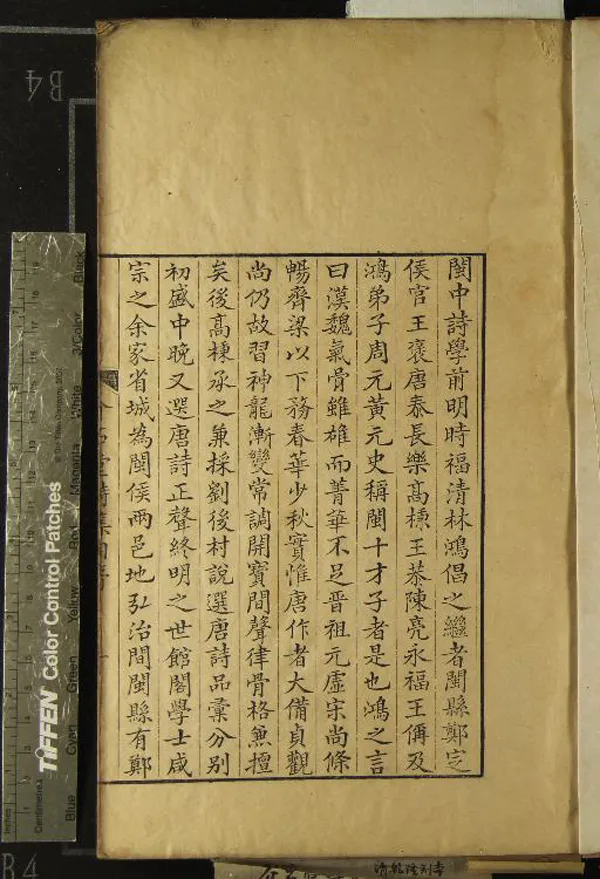 閩中詩學前明時福清林鴻倡之繼者閩縣鄭定
侯官王褒唐泰長樂高㯹王恭陳亮永福王偁及
鴻弟子周元黃元史稱閩十才子者是也鴻之言
曰漢魏氣骨雖雄而菁華不足晉祖元虛宋尚條
暢齊梁以下務春華少秋實惟唐作者大備貞觀
尚仍故習神龍漸變常調開寶間聲律骨格兼擅
矣後高棟承之兼採劉後村說選唐詩品彙分別
初盛中晚又選唐詩正聲終明之世館閣學士咸
宗之余家省城為閩侯兩邑地弘治間閩縣有鄭
詩集
一
B4
B4
TIFFEN Color Control Patches
© The Tiffen Company, 2007
Inches
Centimetres
Blue
Cyan
Green
Yellow
Red
Magenta
White
3/Color
Black
清乾隆刻本